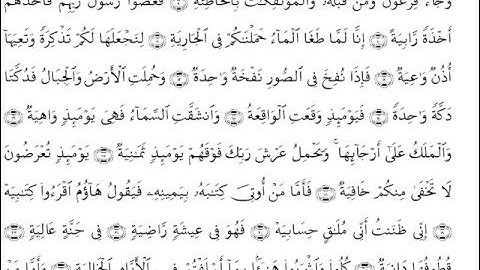 وَجَآءَ فِرْعَوْنُ وَمَن قَبْلَهُۥ وَٱلْمُؤْتَفِكَٰتُ بِٱلْخَاطِئَةِ ۝٩ فَعَصَوْا۟ رَسُولَ رَبِّهِمْ فَأَخَذَهُمْ
أَخْذَةً رَّابِيَةً ۝١٠ إِنَّا لَمَّا طَغَا ٱلْمَآءُ حَمَلْنَٰكُمْ فِى ٱلْجَارِيَةِ ۝١١ لِنَجْعَلَهَا لَكُمْ تَذْكِرَةً وَتَعِيَهَآ
أُذُنٌ وَٰعِيَةٌ ۝١٢ فَإِذَا نُفِخَ فِى ٱلصُّورِ نَفْخَةٌ وَٰحِدَةٌ ۝١٣ وَحُمِلَتِ ٱلْأَرْضُ وَٱلْجِبَالُ فَدُكَّتَا
دَكَّةً وَٰحِدَةً ۝١٤ فَيَوْمَئِذٍ وَقَعَتِ ٱلْوَاقِعَةُ ۝١٥ وَٱنشَقَّتِ ٱلسَّمَآءُ فَهِىَ يَوْمَئِذٍ وَاهِيَةٌ ۝١٦
وَٱلْمَلَكُ عَلَىٰٓ أَرْجَآئِهَا ۚ وَيَحْمِلُ عَرْشَ رَبِّكَ فَوْقَهُمْ يَوْمَئِذٍ ثَمَٰنِيَةٌ ۝١٧ يَوْمَئِذٍ تُعْرَضُونَ
لَا تَخْفَىٰ مِنكُمْ خَافِيَةٌ ۝١٨ فَأَمَّا مَنْ أُوتِىَ كِتَٰبَهُۥ بِيَمِينِهِۦ فَيَقُولُ هَآؤُمُ ٱقْرَءُوا۟ كِتَٰبِيَهْ
۝١٩ إِنِّى ظَنَنتُ أَنِّى مُلَٰقٍ حِسَابِيَهْ ۝٢٠ فَهُوَ فِى عِيشَةٍ رَّاضِيَةٍ ۝٢١ فِى جَنَّةٍ عَالِيَةٍ ۝٢٢
قُطُوفُهَا دَانِيَةٌ ۝٢٣ كُلُوا۟ وَٱشْرَبُوا۟ هَنِيٓـًٔۢا بِمَآ أَسْلَفْتُمْ فِى ٱلْأَيَّامِ ٱلْخَالِيَةِ ۝٢٤ وَأَمَّا مَنْ